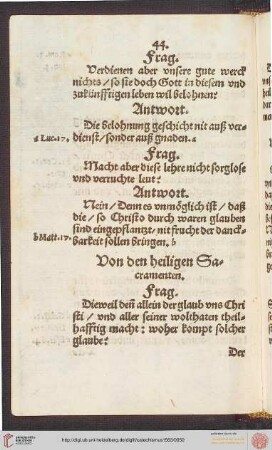 44.
Frag.
Verdienen aber vnsere gute werck
nichts / so sie doch Gott in diesem vnd
zukünfftigen leben wil belohnen?
Antwort.
Die belohnung geschicht nit auß ver-
a Luc. 17.
dienst / sonder auß gnaden. a
Frag.
Macht aber diese lehre nicht sorglose
vnd verruchte leut?
Antwort.
Nein / Denn es vnmöglich ist / daß
die / so Christo durch waren glauben
sind eingepflantzt / nit frucht der danck-
b Matt. 17.
barkeit sollen bringen. b
Von den heiligen Sa-
cramenten.
Frag.
Dieweil deñ allein der glaub vns Chri
sti / vnd aller seiner wolthaten theil-
hafftig macht: woher kompt solcher
glaube?
Der